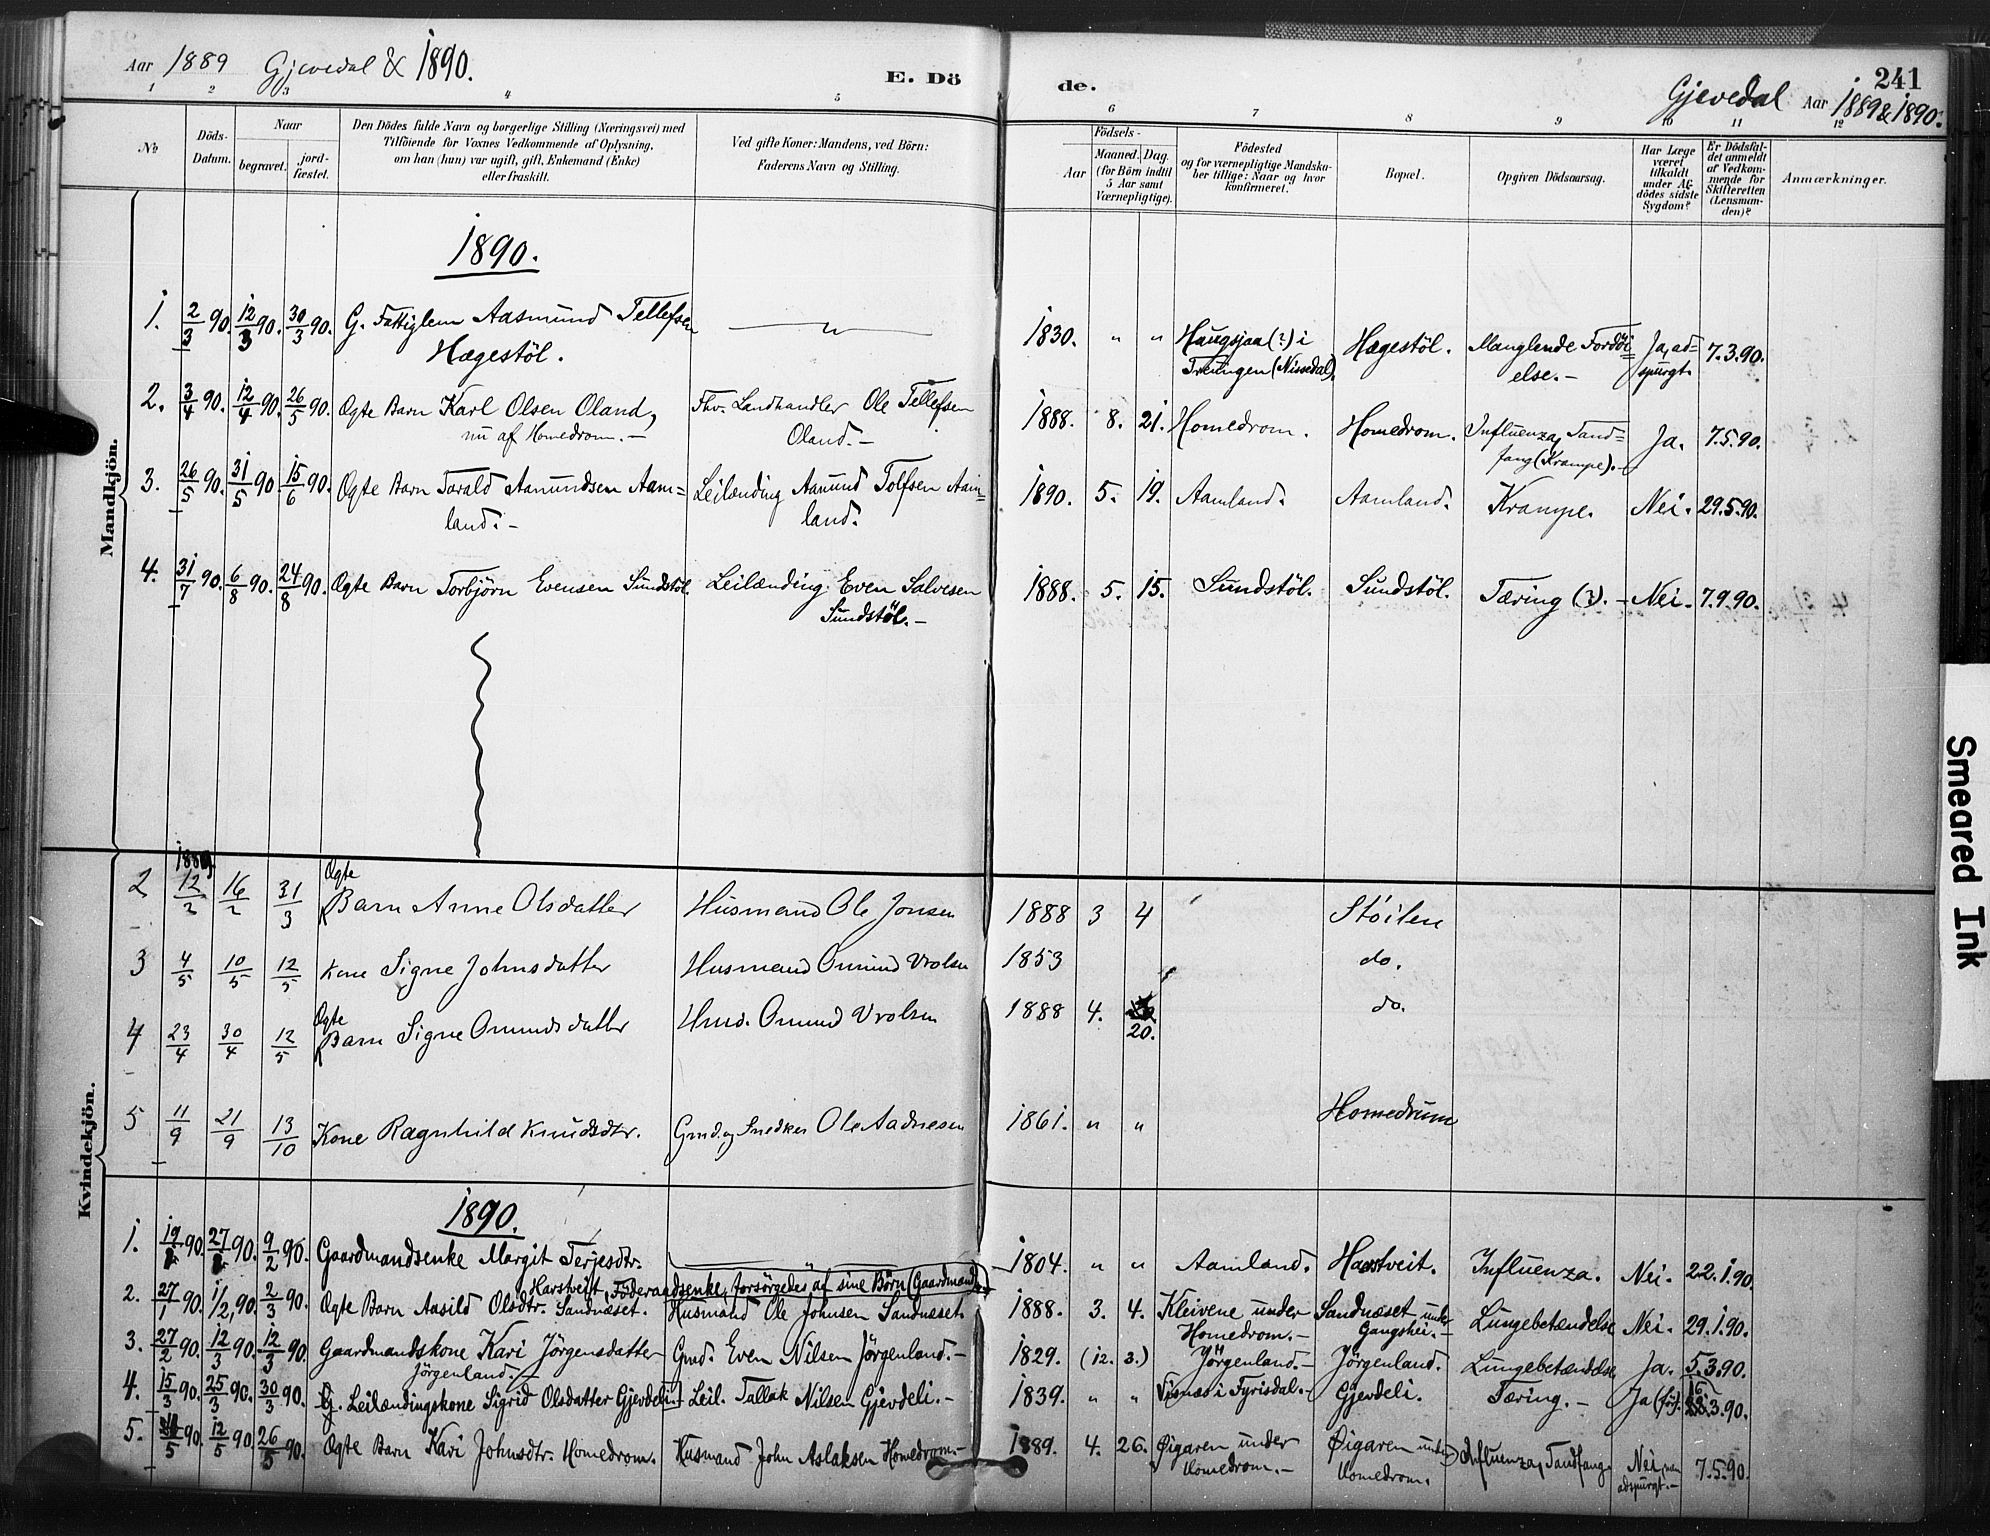 Aar 1889 Gjevedal & 1890.
E. Dö
de.
241
Gjevedal Aar 1889 & 1890.
1 2 3 4 5 6 7 8 9 10 11 12
№
Döds-
Datum.
Naar
begravet.
jord-
fæstet.
Den Dödes fulde Navn og borgerlige Stilling (Næringsvei) med
Tilföiende for Voxnes Vedkommende af Oplysning,
om han (hun) var ugift, gift, Enkemand (Enke)
eller fraskilt.
Ved gifte Koner: Mandens, ved Börn:
Faderens Navn og Stilling.
Födsels-
Aar
Maaned. Dag.
(for Börn indtil
5 Aar samt
Værnepligtige).
Födested
og for værnepligtige Mandska-
ber tillige: Naar og hvor
konfirmeret.
Bopæl.
Opgiven Dödsaarsag.
Har Læge
været
tilkaldt
under Af-
dödes sidste
Sygdom?
Er Dödsfal-
det anmeldt
af Vedkom-
mende for
Skifteretten
(Lensman-
den)?
Anmærkninger.
Mandkjön.
1890.
1. 2/3 90. 12/3 90. 30/3 90. G. Fattiglem Aasmund Tellefsen — " — 1830. " " Haugsjaa (?) i Hægestöl. Manglende Fordöi= Ja, ad- 7.3.90.
Hægestöl. Treungen (Nissedal). else.— spurgt.
2. 3/4 90. 12/4 90. 26/5 90. Ægte Barn Karl Olsen Oland, Fhv. Landhandler Ole Tellefsen 1888. 8. 21. Homedrom. Homedrom. Influenza, Tand= Ja. 7.5.90.
nu af Homedrom.— Oland.— fang (Krampe).—
3. 26/5 90. 31/5 90. 15/6 90. Ægte Barn Tarald Aanundsen Aam= Leilænding Aanund Tolfsen Aam= 1890. 5. 19. Aamland. Aamland. Krampe. Nei. 29.5.90.
land.— land.
4. 31/7 90. 6/8 90. 24/8 90. Ægte Barn Torbjörn Evensen Sundstöl. Leilænding Even Salvesen 1888. 5. 15. Sundstöl. Sundstöl. Tæring (?).— Nei. 7.9.90.
Sundstöl.—
Kvindekjön.
1889
2 12/2 16/2 31/3 Ægte Barn Anne Olsdatter Husmand Ole Jonsen 1888 3 4 Stöilen
3 4/5 10/5 12/5 Kone Signe Johnsdatter Husmand Omund Vrolsen 1853 do.
4 23/4 30/4 12/5 Ægte Barn Signe Omundsdatter Hmd. Omund Vrolsen 1888 4. 20. do.
5 11/9 21/9 13/10 Kone Ragnhild Knudsdtr. Gmd. og Snedker Ole Aadnesen 1861. " " Homedrum
1890.
1. 90. 27 90. 9/2 90. Gaardmandsenke Margit Terjesdtr. 1804. " " Aamland. Harstveit. Influenza. Nei. 22.1.90.
Harstveit, Föderaadsenke, forsörgedes af sine Börn (Gaardmænd)
2. 27/1 90. 1/2, 90. 2/3 90. Ægte Barn Aasild Olsdtr. Sandnæset. Husmand Ole Johnsen Sandnæset. 1888. 3. 4. Kleivene under Sandnæset under Lungebetændelse Nei. 29.1.90.
Homedrom.— Gangshei.—
3. 27/2 90. 12/3 90. 12/3 90. Gaardmandskone Kari Jörgensdatter Gmd. Even Nilsen Jörgenland.— 1829. (12. 3.) Jörgenland.— Jörgenland. Lungebetændelse Ja. 5.3.90.
Jörgenland.—
4. 15/3 90. 25/3 90. 30/3 90. G. Leilændingskone Sigrid Olsdatter Gjevdeli.— Leil. Tallak Nilsen Gjevdeli.— 1839. " " i Fyrisdal.— Gjevdeli. Tæring.— Ja 16.3.90.
5. 90. 12/5 90. 26/5 90. Ægte Barn Kari Johnsdtr. Homedrom. Husmand John Aslaksen Homedrom.— 1889. 4. 26. Øigaren under Øigaren under Influenza, Tandfang. Nei, men 7.5.90.
Homedrom.— Homedrom. adspurgt.—
Smeared Ink